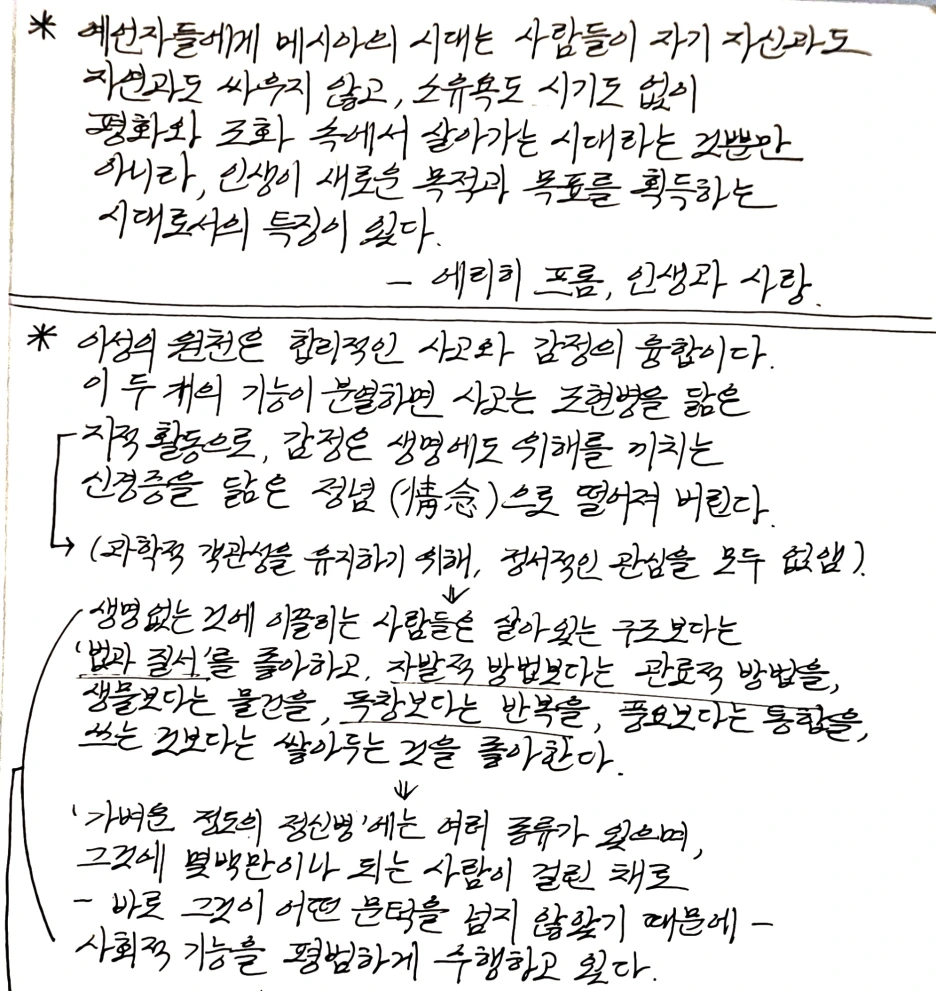 * 예언자들에게 메시아의 시대는 사람들이 자기 자신과도
자연과도 싸우지 않고, 소유욕도 시기도 없이
평화와 조화 속에서 살아가는 시대라는 것뿐만
아니라, 인생이 새로운 목적과 목표를 획득하는
시대로서의 특징이 있다.
- 에리히 프롬, 인생과 사랑.
* 이성의 원천은 합리적인 사고와 감정의 융합이다.
이 두 개의 기능이 분열하면 사고는 조현병을 닮은
지적 활동으로, 감정은 생명에도 위해를 끼치는
신경증을 닮은 정념 (情念)으로 떨어져 버린다.
→ (과학적 객관성을 유지하기 위해, 정서적인 관심을 모두 없앰).
↓
생명없는 것에 이끌리는 사람들은 살아 있는 구조보다는
'법과 질서'를 좋아하고, 자발적 방법보다는 관료적 방법을,
생물보다는 물건을, 독창보다는 반복을, 풍요보다는 통합을,
쓰는 것보다는 쌓아두는 것을 좋아한다.
↓
'가벼운 정도의 정신병'에는 여러 종류가 있으며,
그것에 몇백만이나 되는 사람이 걸린 채로
- 바로 그것이 어떤 문턱을 넘지 않았기 때문에 -
사회적 기능을 평범하게 수행하고 있다.